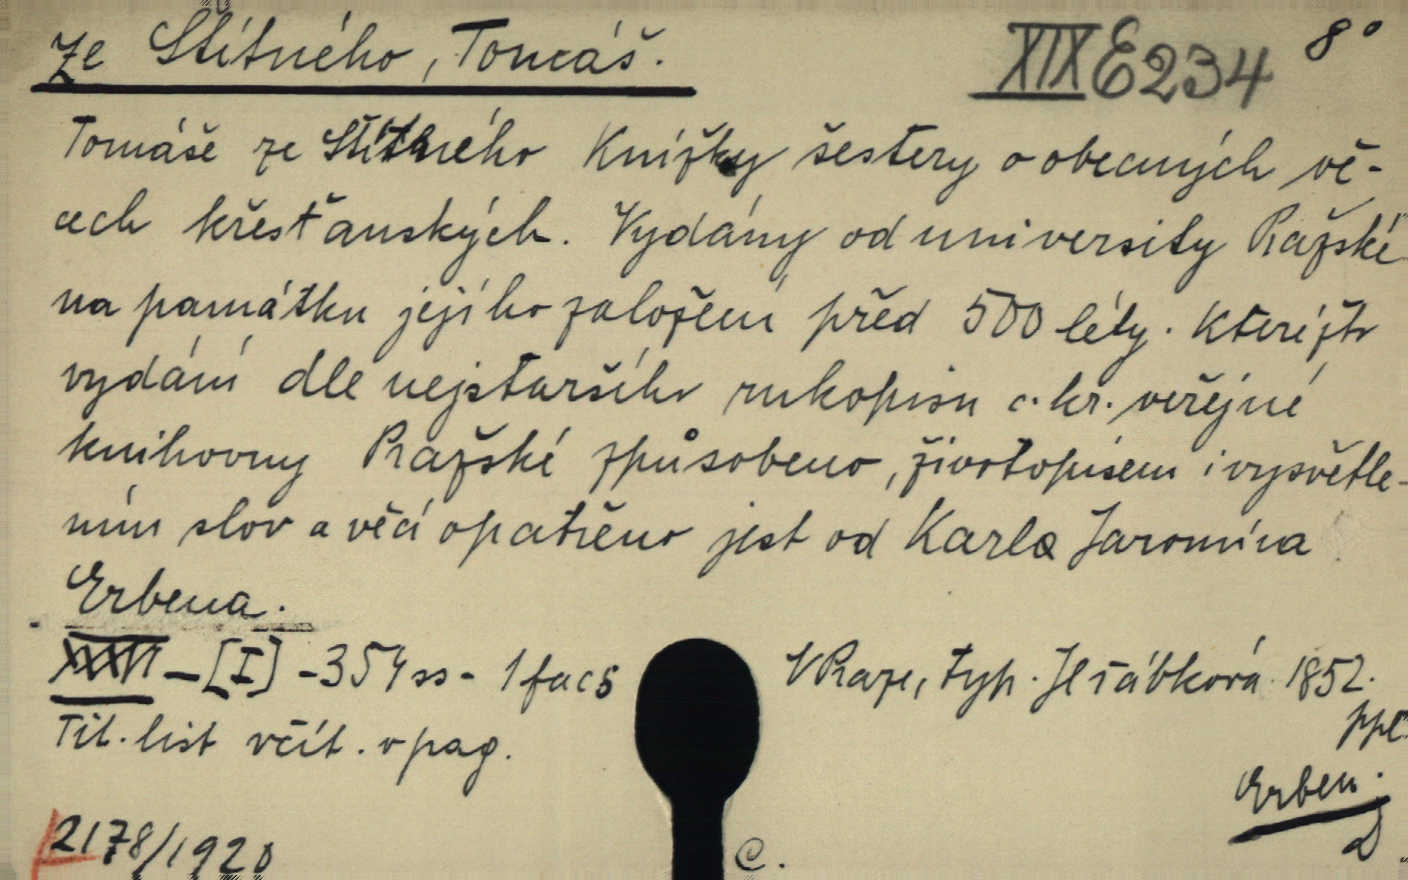 Ze Štítného, Tomáš.
XIX E 234 8°
Tomáše ze Štítného Knížky šestery o obecných vě-
cech křesťanských. Vydány od university Pražské
na památku jejího založení před 500 léty. Kteréžto
vydání dle nejstaršího rukopisu c. kr. veřejné
knihovny Pražské způsobeno, životopisem i vysvětle-
ním slov a věcí opatřeno jest od Karla Jaromíra
Erbena.
XXVI – [I] – 354 ss – 1 facs
V Praze, typ. Jeřábková 1852.
Tit. list včít. v pag.
ppč
Erben.
2178/1920
C.